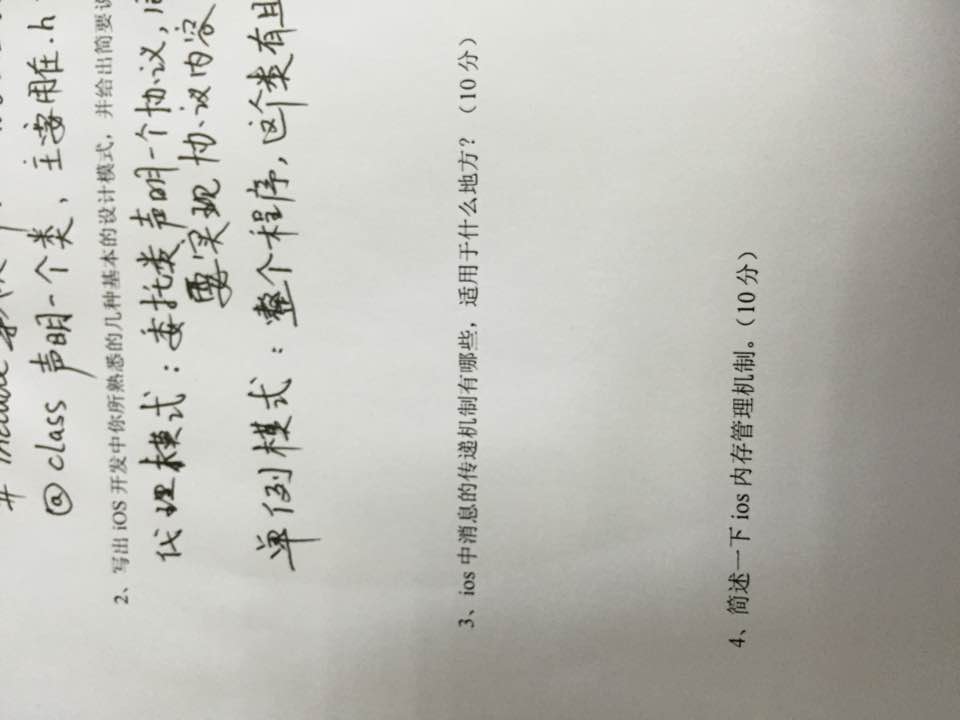 # include
@ class 声明一个类，主要用在.h
2、写出 iOS 开发中你所熟悉的几种基本的设计模式，并给出简要
代理模式：委托类声明一个协议，
要实现协议内容
单例模式：整个程序，这个类有且
3、ios 中消息的传递机制有哪些，适用于什么地方？（10 分）
4、简述一下 ios 内存管理机制。（10 分）